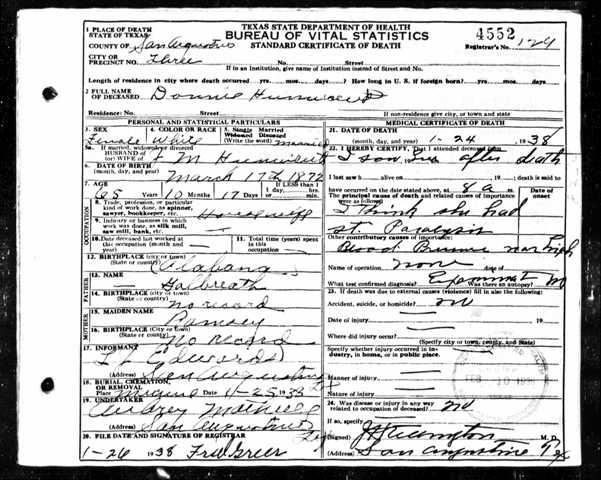 1 PLACE OF DEATH
STATE OF TEXAS
TEXAS STATE DEPARTMENT OF HEALTH
BUREAU OF VITAL STATISTICS
STANDARD CERTIFICATE OF DEATH
4552
COUNTY OF San Augustine
Registrar's No. 124
CITY OR PRECINCT NO. Three No. Street
If in an Institution, give name of Institution instead of Street and No.
Length of residence in city where death occurred yrs. mos. days? How long in U. S. if foreign born? yrs. mos. days
2 FULL NAME OF DECEASED Donnie
Residence: No. Street
If non-residence give city, or town and state
PERSONAL AND STATISTICAL PARTICULARS
3. SEX Female
4. COLOR OR RACE White
5. Single Married Widowed Divorced Married
5a. If married, widowed or divorced HUSBAND OF (or) WIFE OF
6. DATE OF BIRTH (month, day, and year) March 17th 1872
7. AGE 65 Years 10 Months 17 Days If LESS than 1 day, hrs. min.
OCCUPATION
8. Trade, profession, or particular kind of work done, as spinner, sawyer, bookkeeper, etc. Housewife
9. Industry or business in which work was done, as silk mill, saw mill, bank, etc.
10. Date deceased last worked at this occupation (month and year)
11. Total time (years) spent in this occupation
12. BIRTHPLACE (city or town) (State or country) Alabama
FATHER
13. NAME Galbreath
14. BIRTHPLACE (city or town) (State or country) No record
MOTHER
15. MAIDEN NAME Ramsey
16. BIRTHPLACE (city or town) (State or country) No record
17. INFORMANT Edwards
(Address) San Augustine
18. BURIAL, CREMATION, OR REMOVAL
Place Date 1-25 1938
19. UNDERTAKER Audrey
(Address) San Augustine Tex
20. FILE DATE AND SIGNATURE OF REGISTRAR
1-26 1938 Fred Greer
MEDICAL CERTIFICATE OF DEATH
21. DATE OF DEATH (month, day, and year) 1-24 1938
22. I HEREBY CERTIFY, That I attended deceased from
I saw her after death
I last saw h alive on 19 ; death is said to
have occurred on the date stated above, at 8 a m.
The principal cause of death and related causes of importance were as follows:
Date of onset
I think she had
Paralysis
Other contributory causes of importance:
Blood Pressure
Name of operation none Date of
What test confirmed diagnosis? Was there an autopsy? no
23. If death was due to external causes (violence) fill in also the following:
Accident, suicide, or homicide? no
Date of injury 19
Where did injury occur?
(Specify city or town, county, and State)
Specify whether injury occurred in industry, in home, or in public place.
Manner of injury
Nature of injury
24. Was disease or injury in any way related to occupation of deceased? no
If so, specify
(Signed) M. D.
(Address) San Augustine Tex